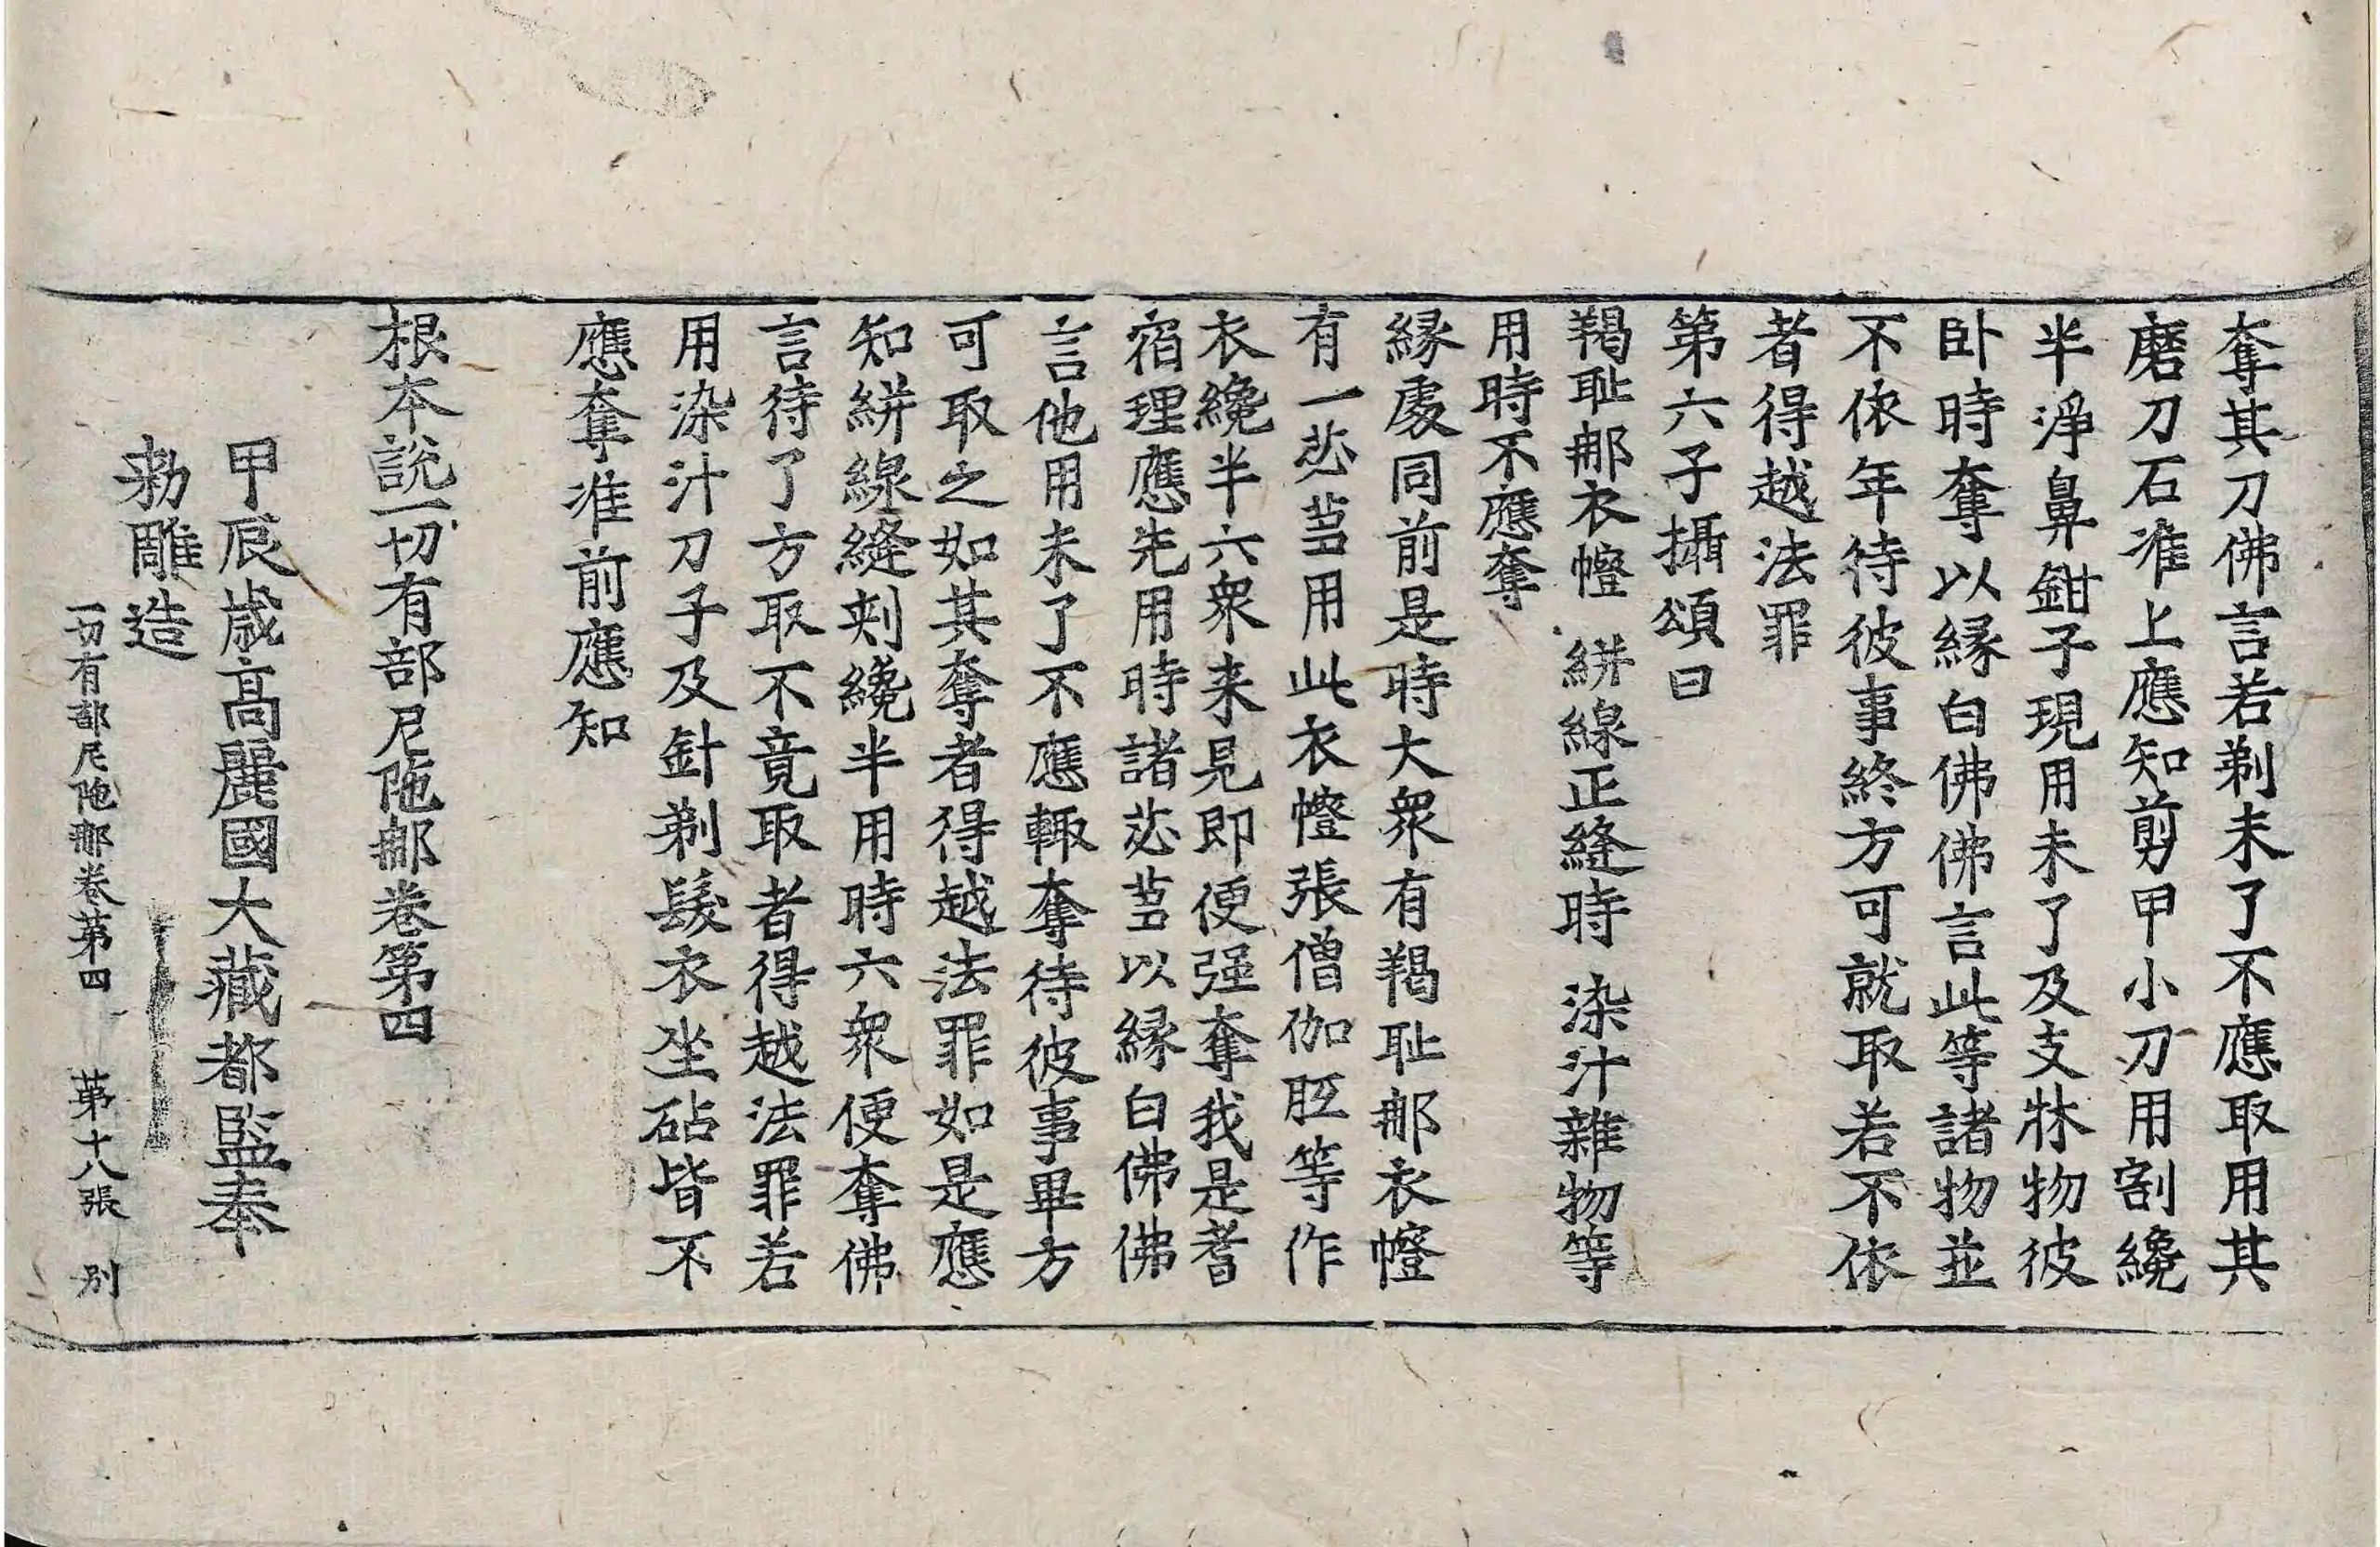 奪其刀佛言若剃未了不應取用其
磨刀石准上應知剪甲小刀用割纔
半淨鼻鉗子現用未了及支牀物彼
卧時奪以緣白佛佛言此等諸物並
不依年待彼事終方可就取若不依
者得越法罪
第六子攝頌曰
羯耻那衣幨 絣線正縫時 染汁雜物等
用時不應奪
緣處同前是時大衆有羯耻那衣幨
有一苾芻用此衣幨張僧伽胝等作
衣纔半六衆来見即便强奪我是耆
宿理應先用時諸苾芻以緣白佛佛
言他用未了不應輙奪待彼事畢方
可取之如其奪者得越法罪如是應
知絣線縫刺纔半用時六衆便奪佛
言待了方取不竟取者得越法罪若
用染汁刀子及針剃髮衣坐砧皆不
應奪准前應知
根本說一切有部尼陁那卷第四
甲辰歲高麗國大藏都監奉
勅雕造
一切有部尼陁那卷第四 第十八張 別